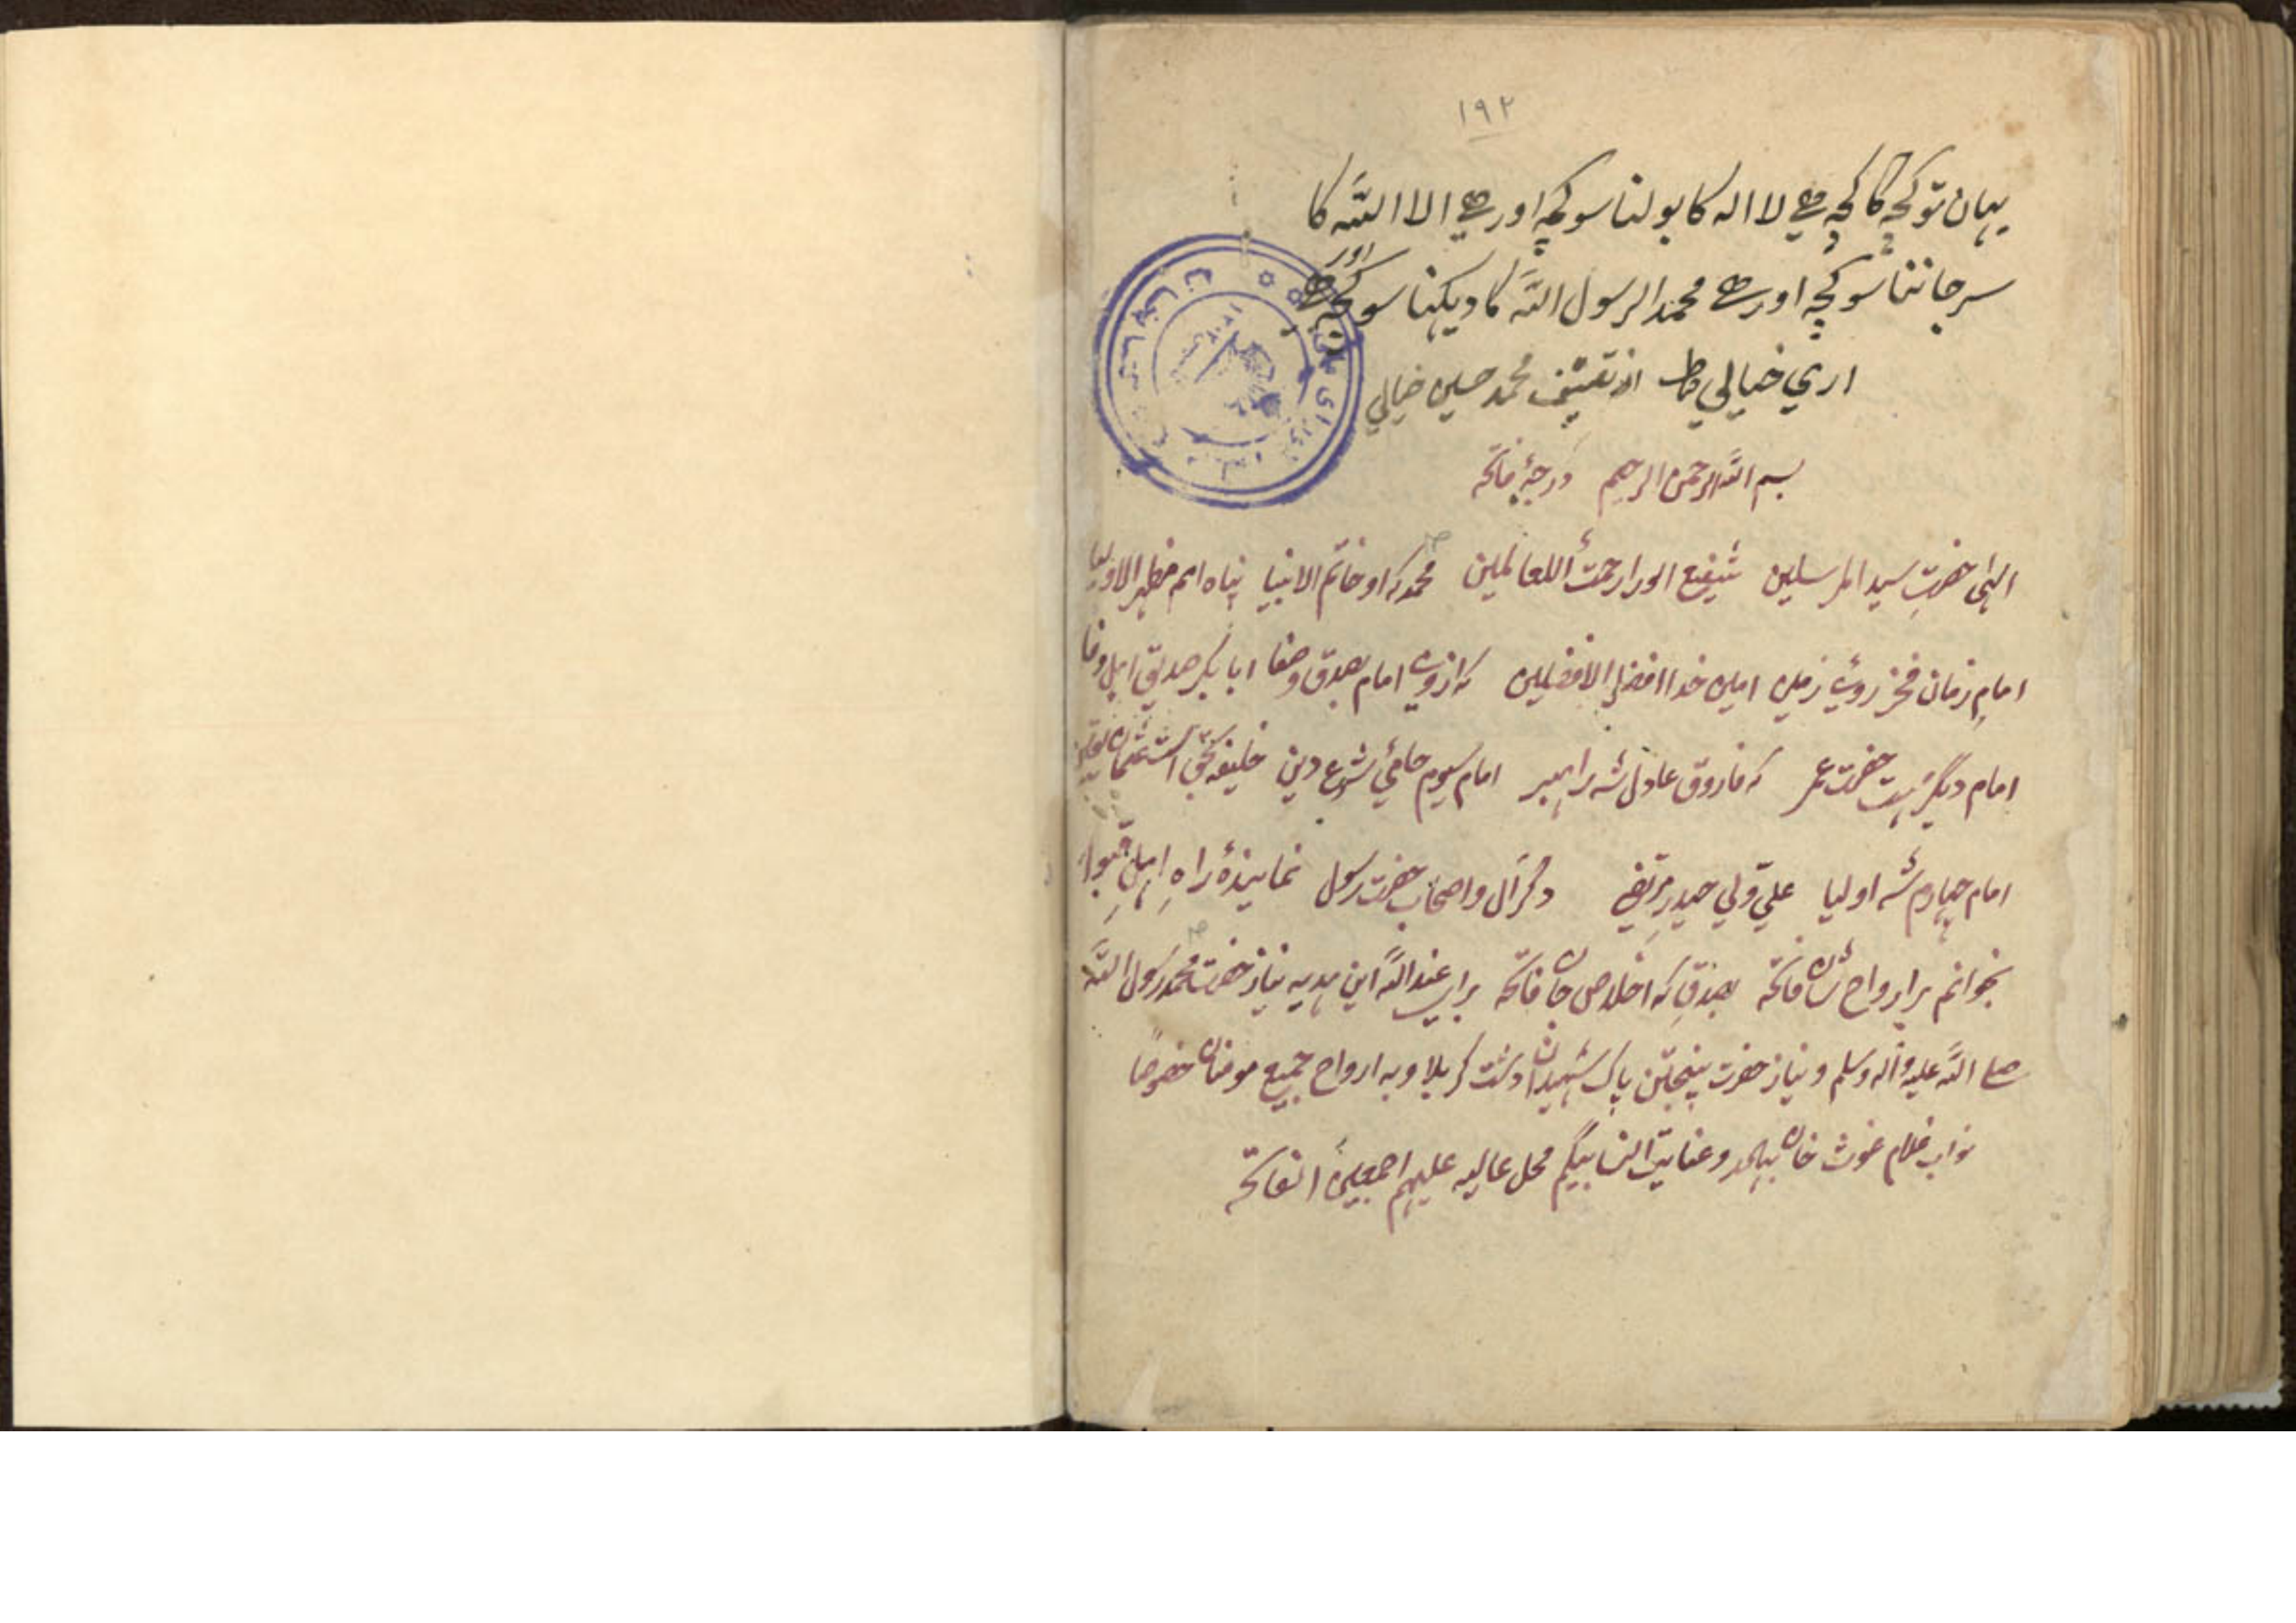 ۱۹۲
یہان تو کچہ کا کچہ ہے لا الہ کا بولنا سو کچہ اور ہے الا اللہ کا
سرجاننا سو کچہ اور ہے محمد الرسول اللہ کا دیکہنا سو کچہ اور ہے
اری خیالي محمد حسین خیالي
بسم اللہ الرحمن الرحیم درجۂ فاتحہ
الہی حضرتِ سید المرسلین شفیع الورا رحمتُ اللعالمین محمد کہ او خاتم الانبیا پناہ امم مظہر الاولیا
امام زمان فخر روئے زمین امین خدا افضل الافضلین امام بصدق وصفا ابابکر صدیق اہل وفا
امام دیگر ہست حضرت عمر کہ فاروق عادل شہ راہبر امام سیوم حامیٔ شرع دین خلیفہ بحق است عثمان یقین
امام چہارم شہ اولیا علي ولي حیدر مرتضی دگر آل واصحاب حضرت رسول نمایندۂ راہِ اہل قبول
بخوانم بر ارواح شان فاتحہ بصدقِ کہ اخلاص جان فاتحہ برای عند اللہ این ہدیہ نیاز حضرت محمد رسول اللہ
صلی اللہ علیہ وآلہ وسلم ونیاز حضرت پنجتن پاک شہیدان دشت کربلا وبہ ارواح جمیع مومنان خصوصًا
نواب غلام غوث خان بہادر وعنایت النسا بیگم محل عالیہ علیہم اجمعین الفاتحہ